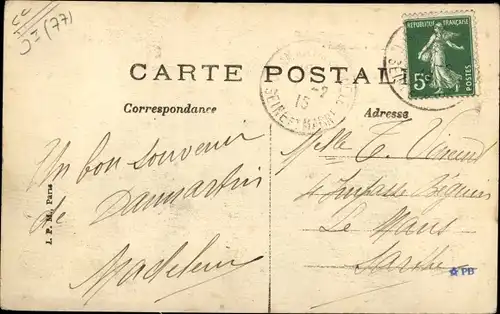 (77)
RÉPUBLIQUE FRANÇAISE
5c
POSTES
CARTE POSTALE
15
SEINE-ET-MARNE
Correspondance
Adresse
Un bon souvenir
de Dammartin
Madeleine
Melle T. Vincent
4 Impasse Béguin
Le Mans
Sarthe
J. P. M., Paris
PB